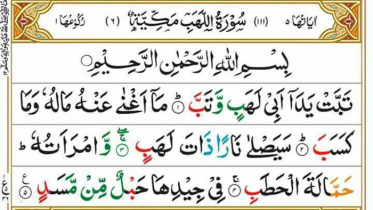 اٰیَاتُهَا ۵ (۱۱۱) سُوْرَةُ اللَّهَبِ مَكِّیَّةٌ (۶) رُكُوْعُهَا ۱
بِسْمِ اللهِ الرَّحْمٰنِ الرَّحِیْمِ
تَبَّتْ یَدَاۤ اَبِیْ لَهَبٍ وَّ تَبَّ ۱ مَاۤ اَغْنٰی عَنْهُ مَالُهٗ وَمَا
كَسَبَ ۲ سَیَصْلٰی نَارًا ذَاتَ لَهَبٍ ۳ وَّ امْرَاَتُهٗ ط
حَمَّالَةَ الْحَطَبِ ۴ فِیْ جِیْدِهَا حَبْلٌ مِّنْ مَّسَدٍ ۵